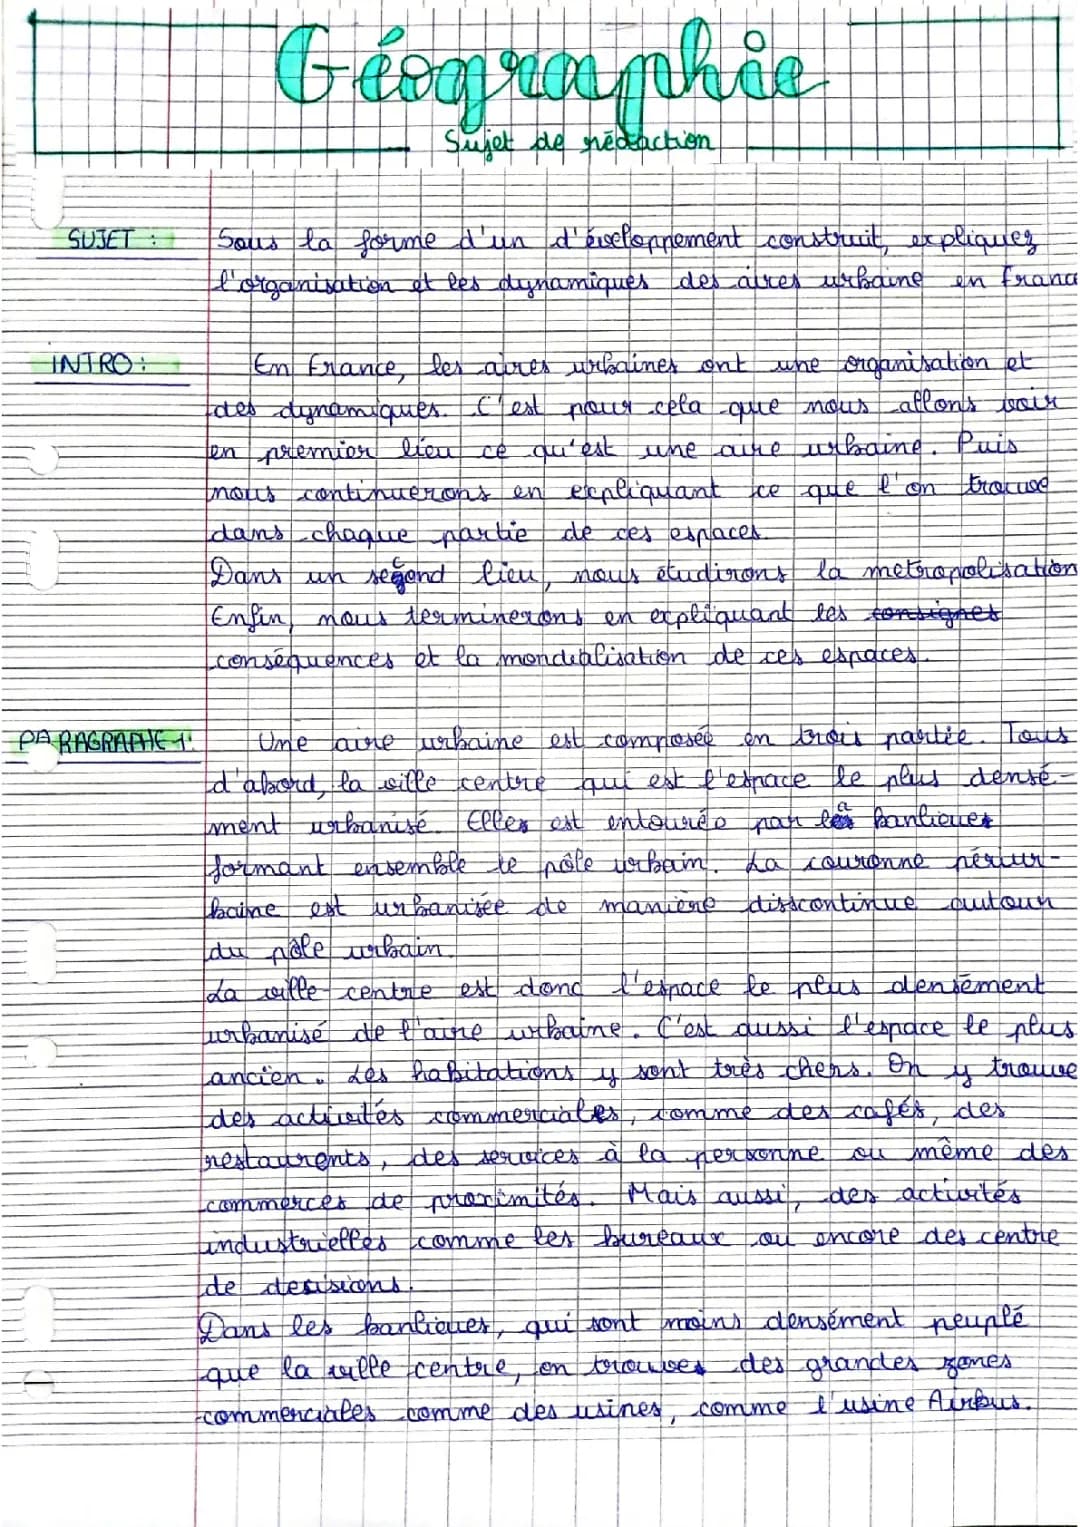 Géographie
Sujet de rédaction
SUJET : Sous la forme d'un d'éveloppement construit, expliquez
l'organisation et les dynamiques des aires urbaine en franc
INTRO : En France, les aires urbaines ont une organisation et
des dynamiques. C'est pour cela que nous allons voir
en premier lieu ce qu'est une aire urbaine. Puis
nous continuerons en expliquant ce que l'on trouve
dans chaque partie de ces espaces.
Dans un segond lieu, nous étudirons la métropolisation
Enfin, nous terminerons en expliquant les consignes
conséquences et la mondialisation de ces espaces.
PARAGRAPHE 1: Une aire urbaine est composée en trois partie. Tous
d'abord, la ville centre qui est l'espace le plus densé-
ment urbanisé. Elles est entourée par la banlieues
formant ensemble le pôle urbain. La couronne périur-
baine est urbanisée de manière discontinue autour
du pôle urbain.
La ville-centre est donc l'espace le plus densément
urbanisé de l'aire urbaine. C'est aussi l'espace le plus
ancien. Les habitations y sont très chers. On y trouve
des activités commerciales, comme des cafés, des
restaurents, des services à la personne ou même des
commerces de proximités. Mais aussi, des activités
industrielles comme les bureaux ou encore des centre
de desisions.
Dans les banlieues, qui sont moins densément peuplé
que la ville centre, on trouves des grandes zones
commerciales comme des usines, comme l'usine Airbus.